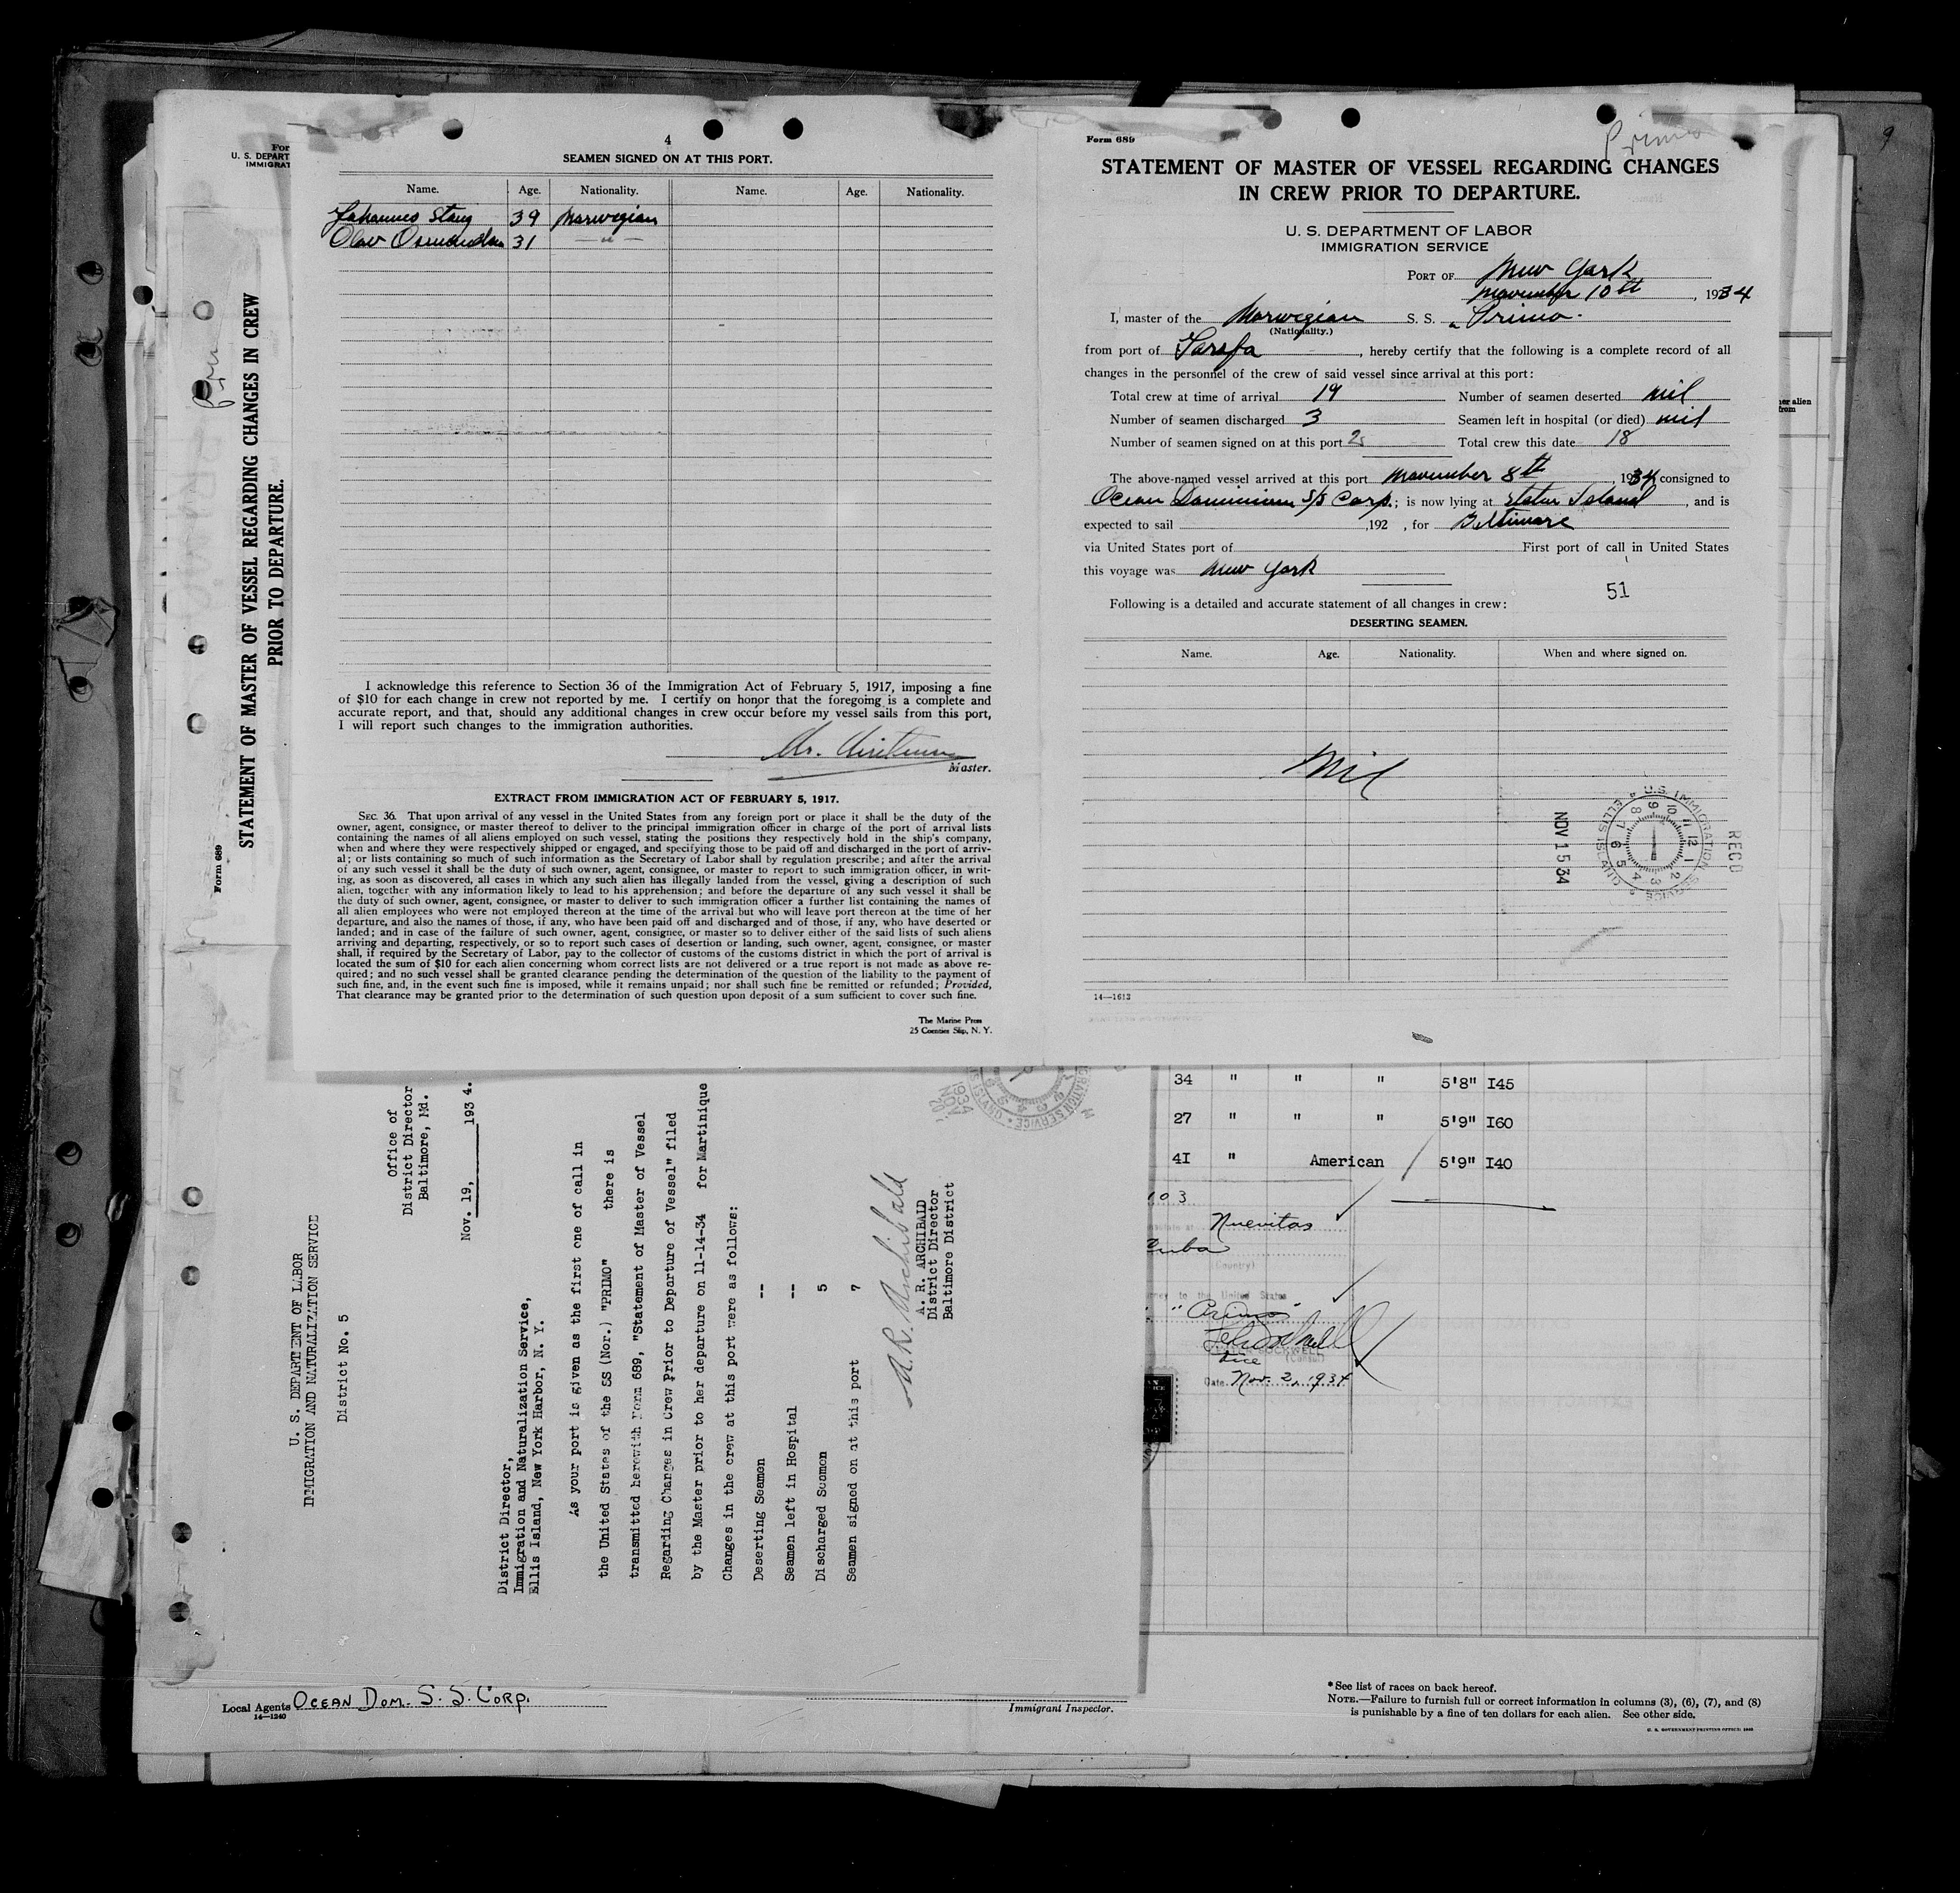 9
4
SEAMEN SIGNED ON AT THIS PORT.
Name. Age. Nationality. Name. Age. Nationality.
Johannes Stang 39 Norwegian
Olav Osmundsen 31 — " —
I acknowledge this reference to Section 36 of the Immigration Act of February 5, 1917, imposing a fine
of $10 for each change in crew not reported by me. I certify on honor that the foregoing is a complete and
accurate report, and that, should any additional changes in crew occur before my vessel sails from this port,
I will report such changes to the immigration authorities.
Master.
EXTRACT FROM IMMIGRATION ACT OF FEBRUARY 5, 1917.
SEC. 36. That upon arrival of any vessel in the United States from any foreign port or place it shall be the duty of the
owner, agent, consignee, or master thereof to deliver to the principal immigration officer in charge of the port of arrival lists
containing the names of all aliens employed on such vessel, stating the positions they respectively hold in the ship's company,
when and where they were respectively shipped or engaged, and specifying those to be paid off and discharged in the port of arriv-
al; or lists containing so much of such information as the Secretary of Labor shall by regulation prescribe; and after the arrival
of any such vessel it shall be the duty of such owner, agent, consignee, or master to report to such immigration officer, in writ-
ing, as soon as discovered, all cases in which any such alien has illegally landed from the vessel, giving a description of such
alien, together with any information likely to lead to his apprehension; and before the departure of any such vessel it shall be
the duty of such owner, agent, consignee, or master to deliver to such immigration officer a further list containing the names of
all alien employees who were not employed thereon at the time of the arrival but who will leave port thereon at the time of her
departure, and also the names of those, if any, who have been paid off and discharged and of those, if any, who have deserted or
landed; and in case of the failure of such owner, agent, consignee, or master so to deliver either of the said lists of such aliens
arriving and departing, respectively, or so to report such cases of desertion or landing, such owner, agent, consignee, or master
shall, if required by the Secretary of Labor, pay to the collector of customs of the customs district in which the port of arrival is
located the sum of $10 for each alien concerning whom correct lists are not delivered or a true report is not made as above re-
quired; and no such vessel shall be granted clearance pending the determination of the question of the liability to the payment of
such fine, and, in the event such fine is imposed, while it remains unpaid; nor shall such fine be remitted or refunded; Provided,
That clearance may be granted prior to the determination of such question upon deposit of a sum sufficient to cover such fine.
The Marine Press
25 Coenties Slip, N. Y.
Form 689
Primo
STATEMENT OF MASTER OF VESSEL REGARDING CHANGES
IN CREW PRIOR TO DEPARTURE.
U. S. DEPARTMENT OF LABOR
IMMIGRATION SERVICE
PORT OF New York
November 10th, 1934
I, master of the Norwegian S. S. "Primo.
(Nationality.)
from port of Tarafa, hereby certify that the following is a complete record of all
changes in the personnel of the crew of said vessel since arrival at this port:
Total crew at time of arrival 19 Number of seamen deserted nil
Number of seamen discharged 3 Seamen left in hospital (or died) nil
Number of seamen signed on at this port 2 Total crew this date 18
The above-named vessel arrived at this port November 8th, 1934 consigned to
Ocean Dominion S/S Corp.; is now lying at Staten Island, and is
expected to sail ,192 , for Baltimore
via United States port of First port of call in United States
this voyage was New York
51
Following is a detailed and accurate statement of all changes in crew:
DESERTING SEAMEN.
Name. Age. Nationality. When and where signed on.
Nil
RECD
U.S. IMMIGRATION SERVICE
ELLIS ISLAND
NOV 15 34
14—1613
For
U. S. DEPART
IMMIGRAT
STATEMENT OF MASTER OF VESSEL REGARDING CHANGES IN CREW
PRIOR TO DEPARTURE.
Form 689
U. S. DEPARTMENT OF LABOR
IMMIGRATION AND NATURALIZATION SERVICE
District No. 5
Office of
District Director
Baltimore, Md.
Nov. 19, 193 4.
District Director,
Immigration and Naturalization Service,
Ellis Island, New York Harbor, N. Y.
As your port is given as the first one of call in
the United States of the SS (Nor.) "PRIMO" there is
transmitted herewith Form 689, "Statement of Master of Vessel
Regarding Changes in Crew Prior to Departure of Vessel" filed
by the Master prior to her departure on 11-14-34 for Martinique
Changes in the crew at this port were as follows:
Deserting Seamen --
Seamen left in Hospital --
Discharged Seamen 5
Seamen signed on at this port 7
A. R. Archibald
A. R. ARCHIBALD
District Director
Baltimore District
1934
NOV
20
34 " " " 5'8" I45
27 " " " 5'9" I60
4I " American 5'9" I40
103
Nuevitas
Cuba
(Country)
to the United States
"Primo"
Vice (Consul)
Date Nov. 2, 1934
er alien
from
Local Agents OCEAN DOM. S. S. CORP.
14—1240
Immigrant Inspector.
*See list of races on back hereof.
NOTE.—Failure to furnish full or correct information in columns (3), (6), (7), and (8)
is punishable by a fine of ten dollars for each alien. See other side.